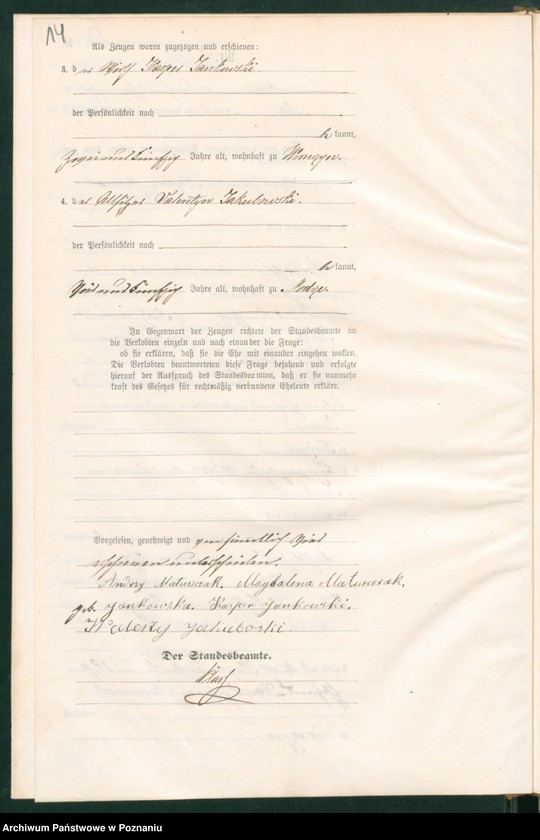 14
Als Zeugen waren zugezogen und erschienen:
3. der Kasper Jankowski.
der Persönlichkeit nach
kannt,
Zwei und fünfzig Jahre alt, wohnhaft zu
4. der Valentyn Jakubowski.
der Persönlichkeit nach
kannt,
und fünfzig Jahre alt, wohnhaft zu
In Gegenwart der Zeugen richtete der Standesbeamte an
die Verlobten einzeln und nach einander die Frage:
ob sie erklären, daß sie die Ehe mit einander eingehen wollen.
Die Verlobten beantworteten diese Frage bejahend und erfolgte
hierauf der Ausspruch des Standesbeamten, daß er sie nunmehr
kraft des Gesetzes für rechtmäßig verbundene Eheleute erkläre.
Vorgelesen, genehmigt und
Andrzy Matuszak, Magdalena Matuszak,
geb. Jankowska. Kasper Jankowski.
Jakuboski.
Der Standesbeamte.
Archiwum Państwowe w Poznaniu